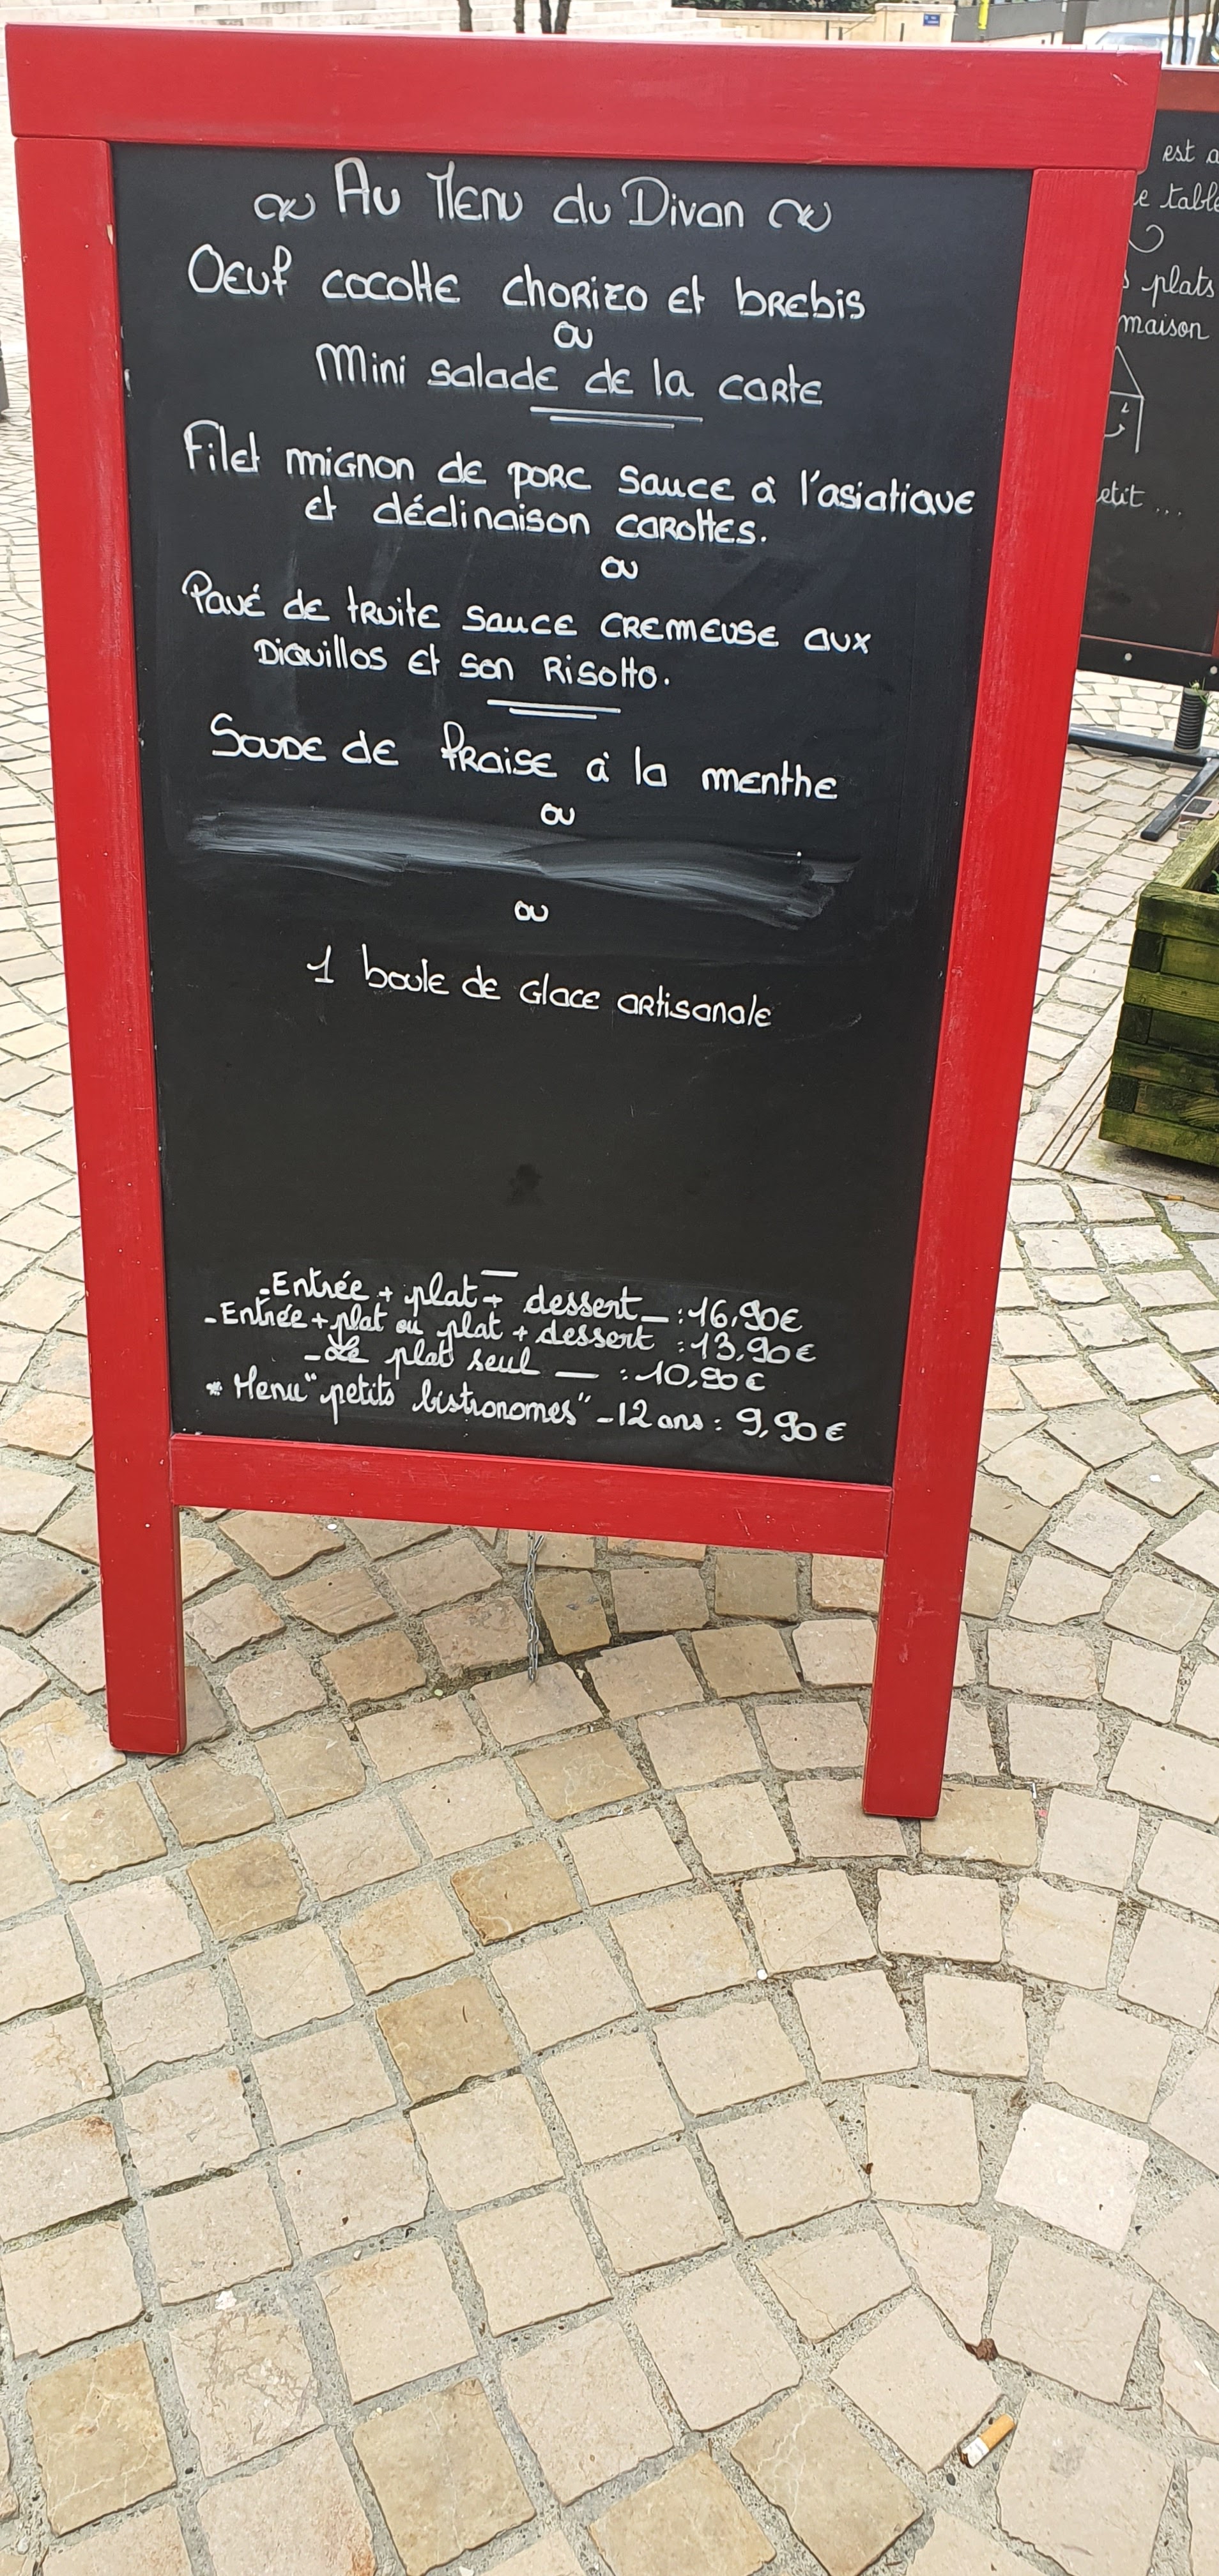 Au Menu du Divan
Oeuf cocotte chorizo et brebis
ou
Mini salade de la carte
Filet mignon de porc sauce à l'asiatique
et déclinaison carottes.
ou
Pavé de truite sauce cremeuse aux
Piquillos et son Risotto.
Soupe de fraise à la menthe
ou
ou
1 boule de glace artisanale
- Entrée + plat + dessert — : 16,90€
- Entrée + plat ou plat + dessert : 13,90€
- Le plat seul — : 10,90€
* Menu "petits bistronomes" - 12 ans : 9,90€
est a
e table
s plats
maison
etit ...